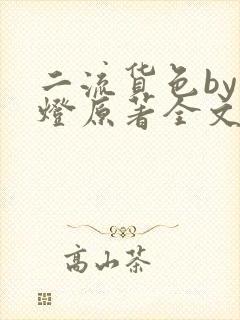 二流货色by
燈原著全文
高山茶